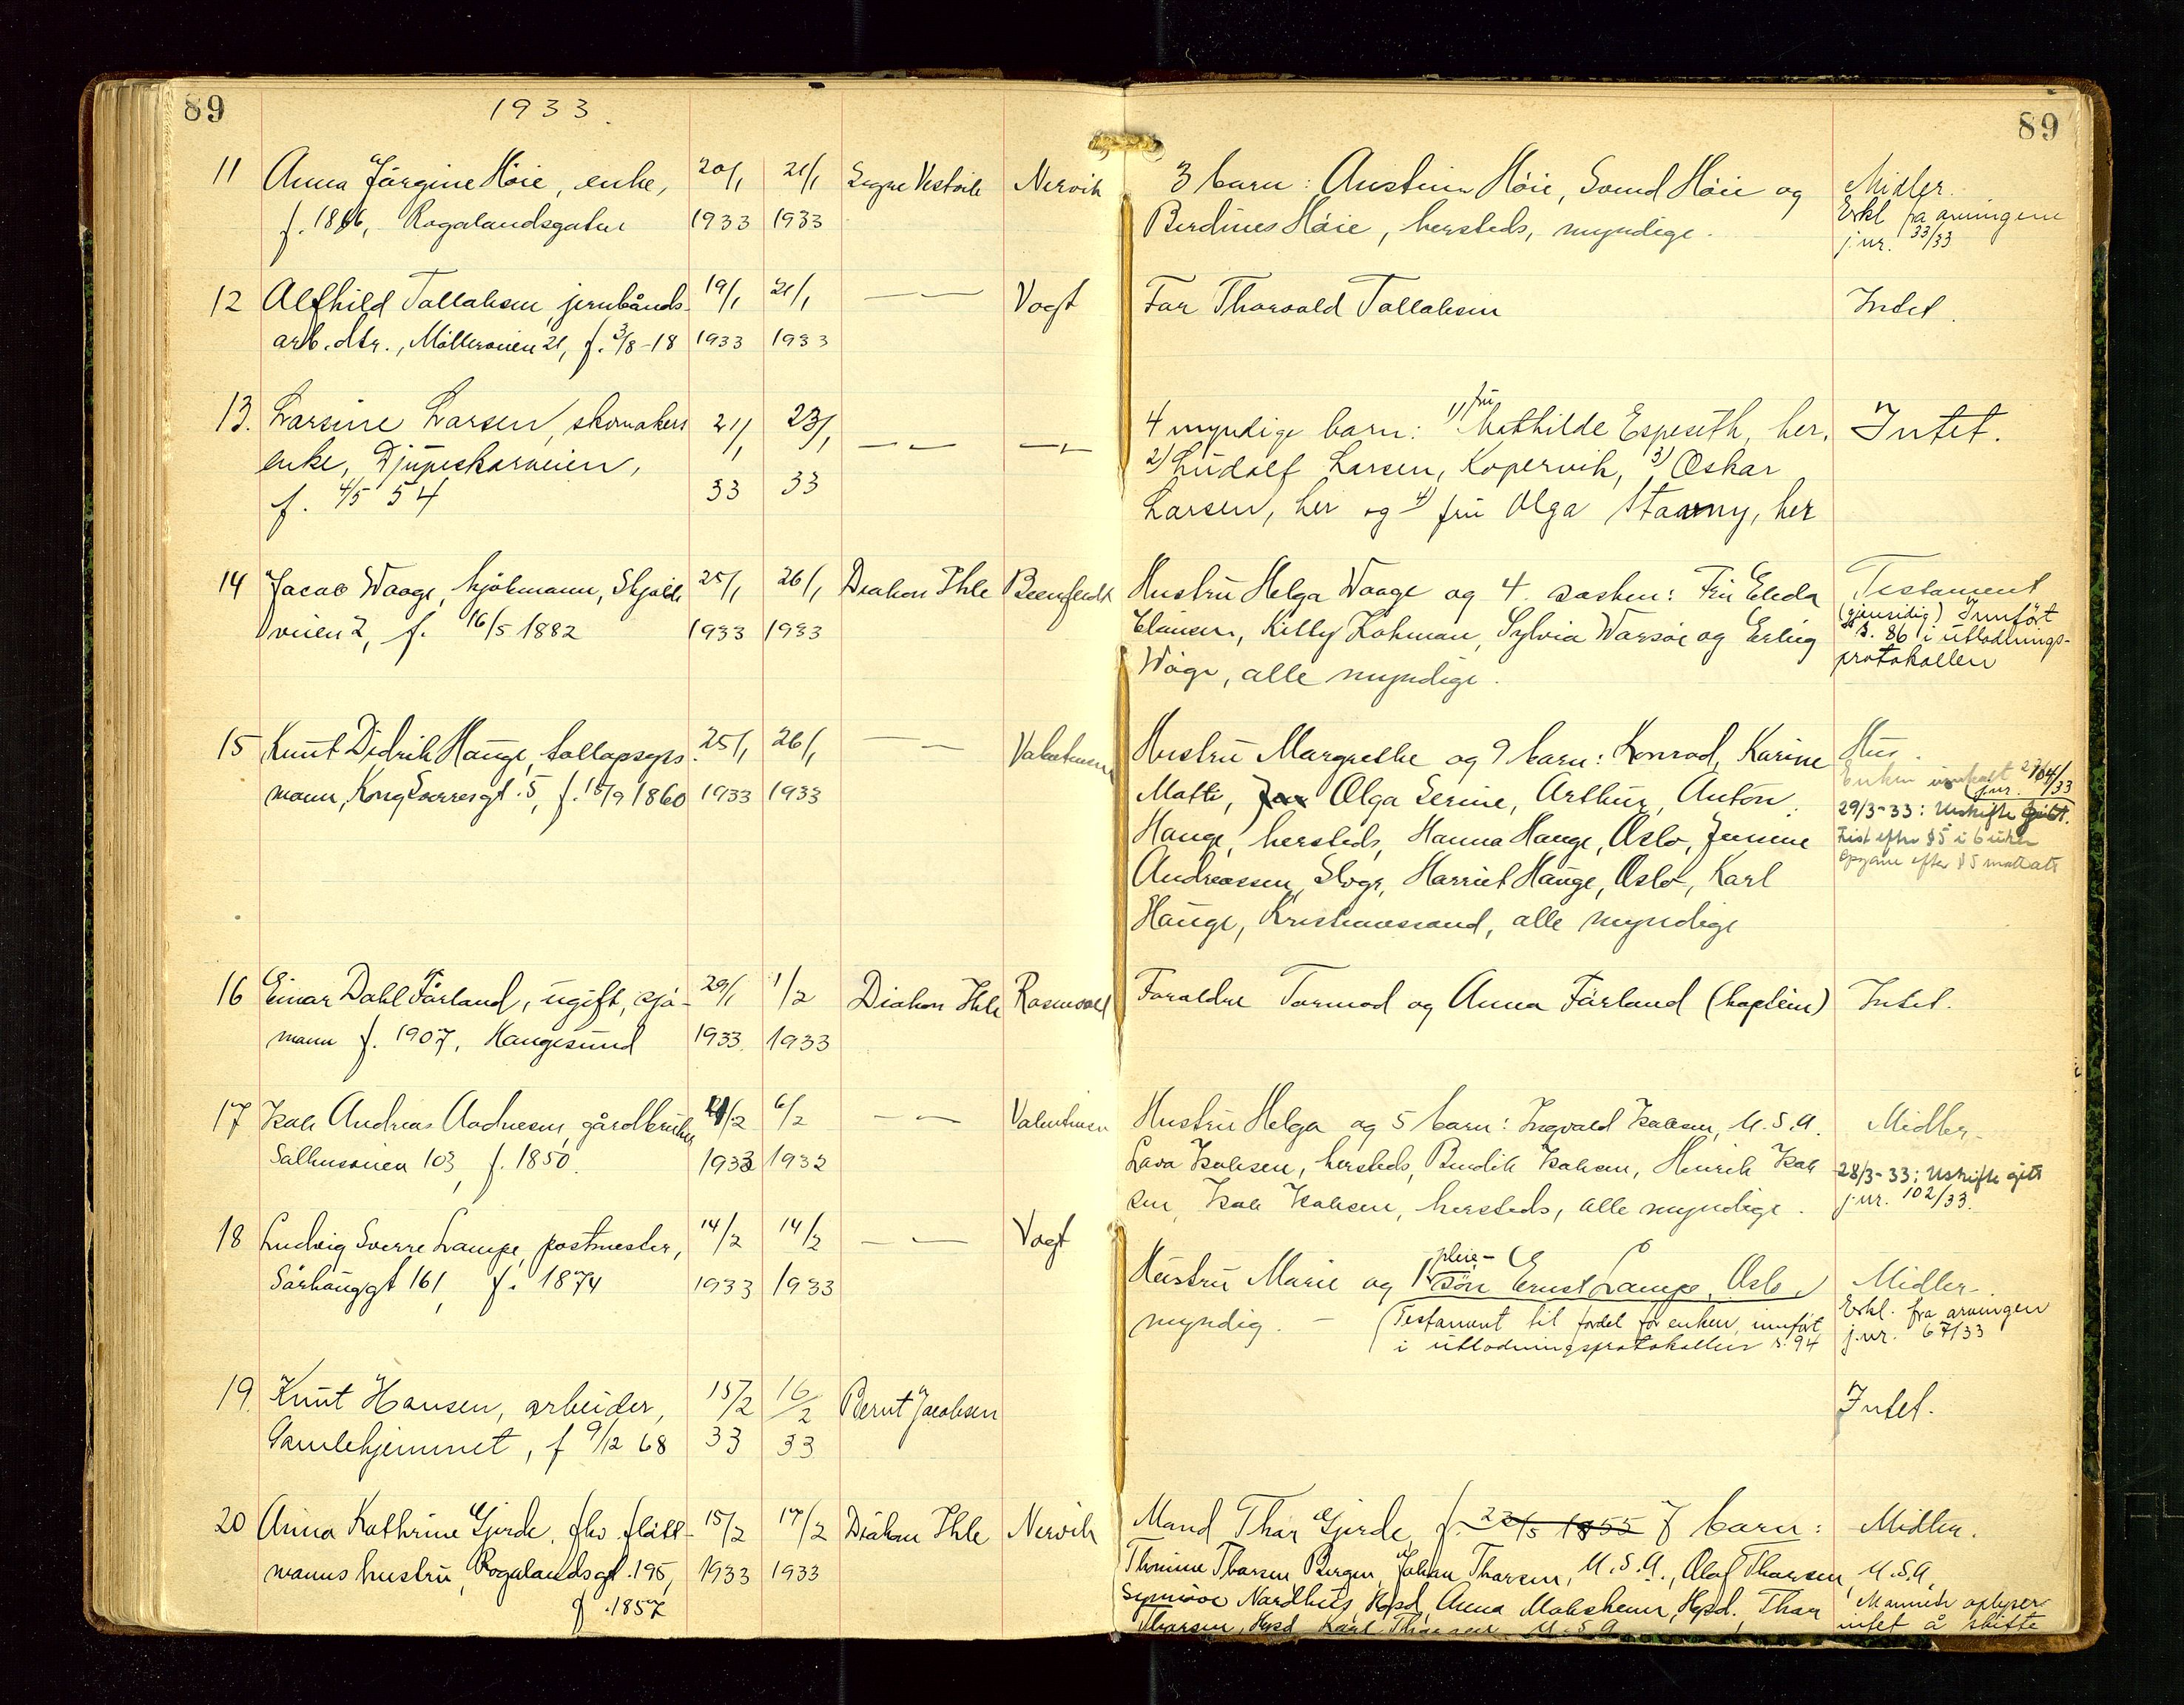 89
1933.
89
11 Anna Jörgine Höie, enke, 20/1 21/1 Signe Vestvik Nervik 3 barn: Austinn Höie, Svend Höie og Midler.
f. 1866, Rogalandsgaten 1933 1933 Berdines Höie, hersteds, myndige. Erkl fra arvingene
j.nr. 33/33
12 Alfhild Tollaksen, jernbånds- 19/1 21/1 — — Vogt Far Thorvald Tollaksen Intet.
arb. dtr., Möllerveien 21, f. 3/8-18 1933 1933
13. Larsine Larsen, skomakers 21/1 23/1 — — — „ 4 myndige barn: 1) fru Mathilde Espeseth, her, Intet.
enke, Djupeskarveien, 2) Ludolf Larsen, Kopervik, 3) Oskar
f. 4/5 54 33 33 Larsen, her og 4) fru Olga Stavny, her
14 Jacob Waage, kjökmann, Skjold 25/1 26/1 Diakon Ihle Hustru Helga Waage og 4 søsken: Fru Elida Testament
veien 2, f. 16/5 1882 1933 1933 Clausen, Killy Lohman, Sylvia og Erling (gjensidig) Innført
Våge, alle myndige. s. 86 i utlodnings-
protokollen
15 Knut Didrik Hauge, tollopsyns 25/1 26/1 — — Valentinsen Hustru Margrethe og 9 barn: Konrad, Karine Hus.
mann, Kong Sverresgt. 5, f. 18/9 1860 1933 1933 Matti, Olga Serine, Arthur, Anton Enken j.nr. 104/33
Hauge, hersteds, Hanna Hauge, Oslo, Jennine 29/3-33: Uskifte gitt.
Andreassen, Skogr, Harriet Hauge, Oslo, Karl Frist efter §5 i 6 uker
Hauge, Kristianssand, alle myndige Opgave efter §5 mottatt
16 Einar Dahl Førland, ugift, sjø- 29/1 1/2 Diakon Ihle Rosnvold Foreldre Tormod og Anna Førland (kaptein) Intet.
mann f. 1907, Haugesund 1933 1933
17 Isak Andreas Aadnesen, gårdbruker 4/2 6/2 — — Valentinsen Hustru Helga og 5 barn: Ingvald Isaksen, U.S.A. Midler.
Salhusveien 103, f. 1850. 1933 1933 Lava Isaksen, hersteds, Bendik Isaksen, Henrik Isak 28/3-33: Uskifte gitt
sen, Isak Isaksen, hersteds, alle myndige. j.nr. 102/33.
18 Ludvig Sverre Lampe, postmester, 14/2 14/2 — — Vogt Hustru Marie og 1 pleie-søn Ernst Lampe, Oslo, Midler.
Sørhauggt 161, f. 1874 1933 1933 myndig. — (Testament til fordel for enken, innført Erkl. fra arvingen
i utlodningsprotokollen s. 94 j.nr. 67/33
19. Knut Hansen, arbeider, 15/2 16/2 Bernt Jacobsen Intet.
Gamlehjemmet, f 9/12 68 33 33
20 Anna Kathrine Gjerde, fhv. flått- 15/2 17/2 Diakon Ihle Nervik Mand Thor Gjerde, f. 22/5 1855 7 barn: Midler.
manns hustru, Rogalandsgt. 195, 1933 1933 Thomine Thorsen Bergen, Johan Thorsen, U.S.A., Olaf Thorsen, U.S.A,
f. 1857 Synnøve Nordhus, Hgsd, Anna Mokshem, Hgsd., Thor Mannen oplyser
Thorsen, Hgsd Karl Thorsen U.S.A intet å skifte